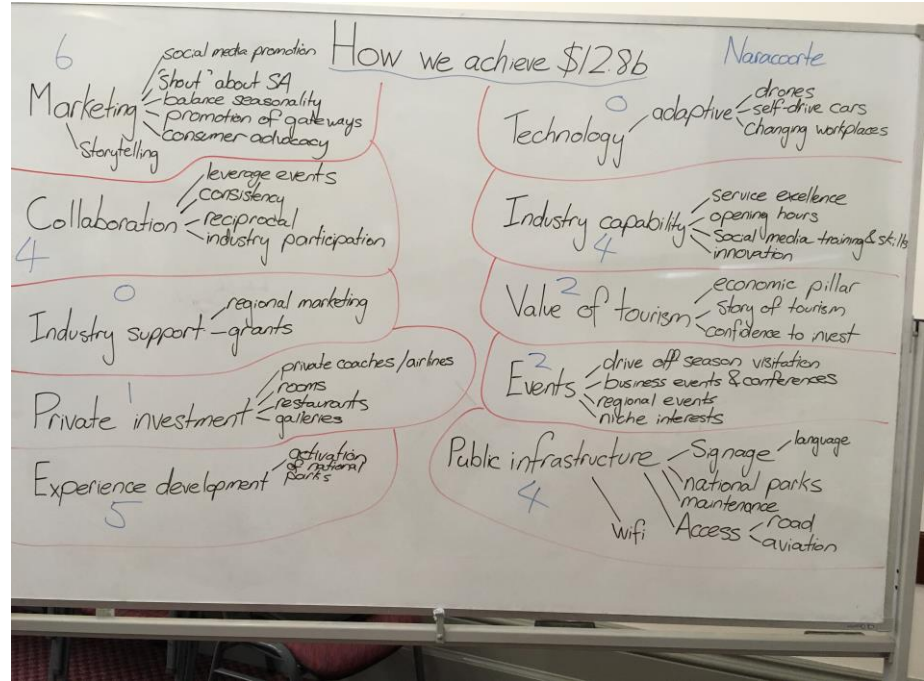 How we achieve $12.8b
Naracoorte
6
Marketing
social media promotion
"Shout" about SA
balance seasonality
promotion of gateways
consumer advocacy
Storytelling
Collaboration
4
leverage events
consistency
reciprocal
industry participation
0
Industry support
regional marketing
grants
1
Private investment
private coaches/airlines
rooms
restaurants
galleries
Experience development
5
activation
of national
parks
0
Technology
adaptive
drones
self-drive cars
changing workplaces
Industry capability
4
service excellence
opening hours
social media training & skills
innovation
2
Value of tourism
economic pillar
story of tourism
confidence to invest
2
Events
drive off season visitation
business events & conferences
regional events
niche interests
Public infrastructure
4
Signage
language
national parks
maintenance
Access
road
aviation
wifi